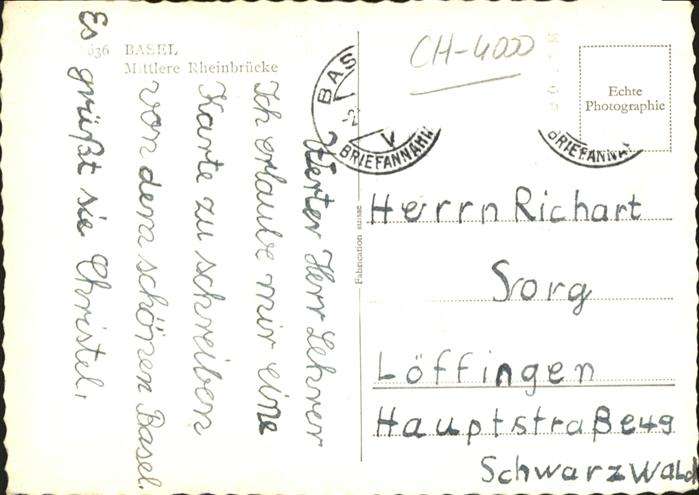 636 BASEL
Mittlere Rheinbrücke
Werter Herr Lehrer
Ich erlaube mir eine
Karte zu schreiben
von dem schönen Basel.
Es grüßt sie Christel.
Fabrication suisse
CH-4000
BAS
-2
V
BRIEFANNAHM
BRIEFANNA
Echte
Photographie
Herrn Richart
Sorg
Löffingen
Hauptstraße 49
Schwarzwald